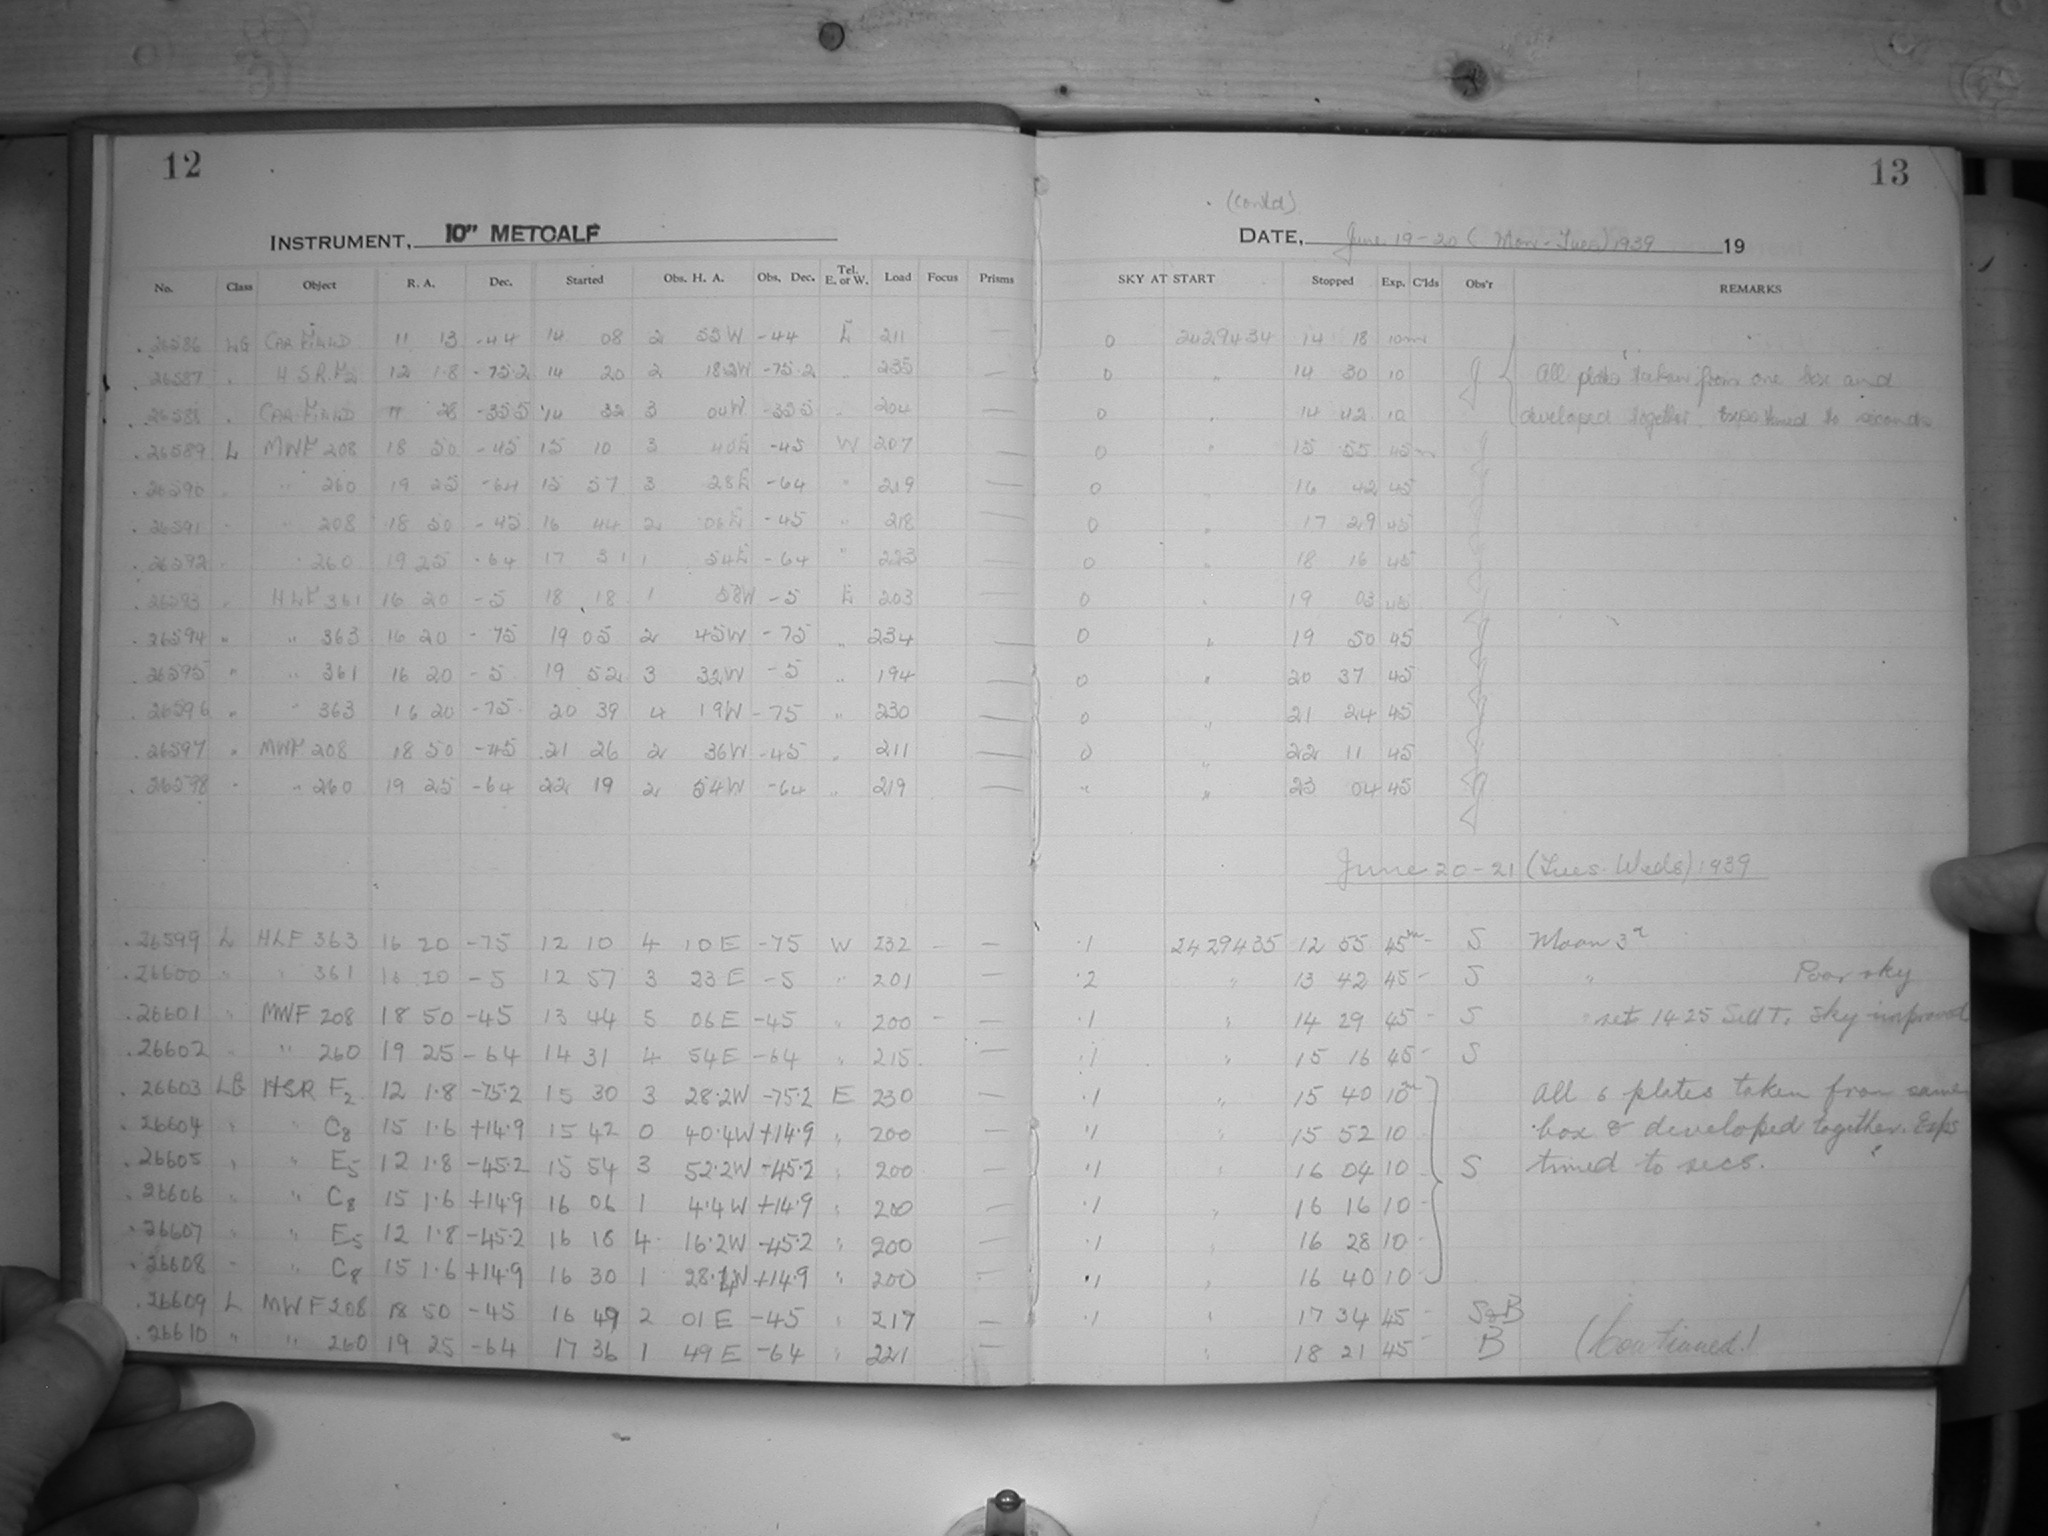 12
13
(Contd)
INSTRUMENT, 10" METCALF
DATE, June 19-20 (Mon-Tues) 1939 19
No. Class Object R. A. Dec. Started Obs. H. A. Obs. Dec. Tel. E. or W. Load Focus Prisms SKY AT START Stopped Exp. C'lds Obs'r REMARKS
26586 LG CAR FIELD 11 13 -44 14 08 2 53W -44 E 211 — 0 2429434 14 18 10m
26587 " H.S.R. F2 12 1.8 -75.2 14 20 2 18.2W -75.2 " 235 — 0 " 14 30 10 All plates taken from one box and
26588 " CAR FIELD 11 28 -35.5 14 32 3 04W -35.5 " 204 — 0 " 14 42 10 developed together. Exps timed to seconds
26589 L MWF 208 18 50 -45 15 10 3 40E -45 W 207 — 0 " 15 55 45m
26590 " " 260 19 25 -64 15 57 3 28E -64 " 219 — 0 " 16 42 45
26591 " " 208 18 50 -45 16 44 2 06E -45 " 218 — 0 " 17 29 45
26592 " " 260 19 25 -64 17 31 1 54E -64 " 223 — 0 " 18 16 45
26593 " HLF 361 16 20 -5 18 18 1 58W -5 E 203 — 0 " 19 03 45
26594 " " 363 16 20 -75 19 05 2 45W -75 " 234 — 0 " 19 50 45
26595 " " 361 16 20 -5 19 52 3 32W -5 " 194 — 0 " 20 37 45
26596 " " 363 16 20 -75 20 39 4 19W -75 " 230 — 0 " 21 24 45
26597 " MWF 208 18 50 -45 21 26 2 36W -45 " 211 — 0 " 22 11 45
26598 " " 260 19 25 -64 22 19 2 54W -64 " 219 — " " 23 04 45
June 20-21 (Tues-Weds) 1939
26599 L HLF 363 16 20 -75 12 10 4 10E -75 W 232 — — .1 2429435 12 55 45m — S Moon 3d
26600 " " 361 16 20 -5 12 57 3 23E -5 " 201 — .2 " 13 42 45 — S " Poor sky
26601 " MWF 208 18 50 -45 13 44 5 06E -45 " 200 — — .1 " 14 29 45 — S " set 14 25 Sid T. Sky improved
26602 " " 260 19 25 -64 14 31 4 54E -64 " 215 — .1 " 15 16 45 — S
26603 LG HSR F2 12 1.8 -75.2 15 30 3 28.2W -75.2 E 230 — .1 " 15 40 10m All 6 plates taken from same
26604 " " C8 15 1.6 +14.9 15 42 0 40.4W +14.9 " 200 — .1 " 15 52 10 box & developed together. Exps
26605 " " E5 12 1.8 -45.2 15 54 3 52.2W -45.2 " 200 — .1 " 16 04 10 — S timed to secs.
26606 " " C8 15 1.6 +14.9 16 06 1 4.4W +14.9 " 200 — .1 " 16 16 10 —
26607 " " E5 12 1.8 -45.2 16 18 4 16.2W -45.2 " 200 — .1 " 16 28 10
26608 " " C8 15 1.6 +14.9 16 30 1 28.4W +14.9 " 200 — .1 " 16 40 10 —
26609 L MWF 208 18 50 -45 16 49 2 01E -45 " 217 — .1 " 17 34 45 — S&B
26610 " " 260 19 25 -64 17 36 1 49E -64 " 221 — " 18 21 45 — B (Continued)